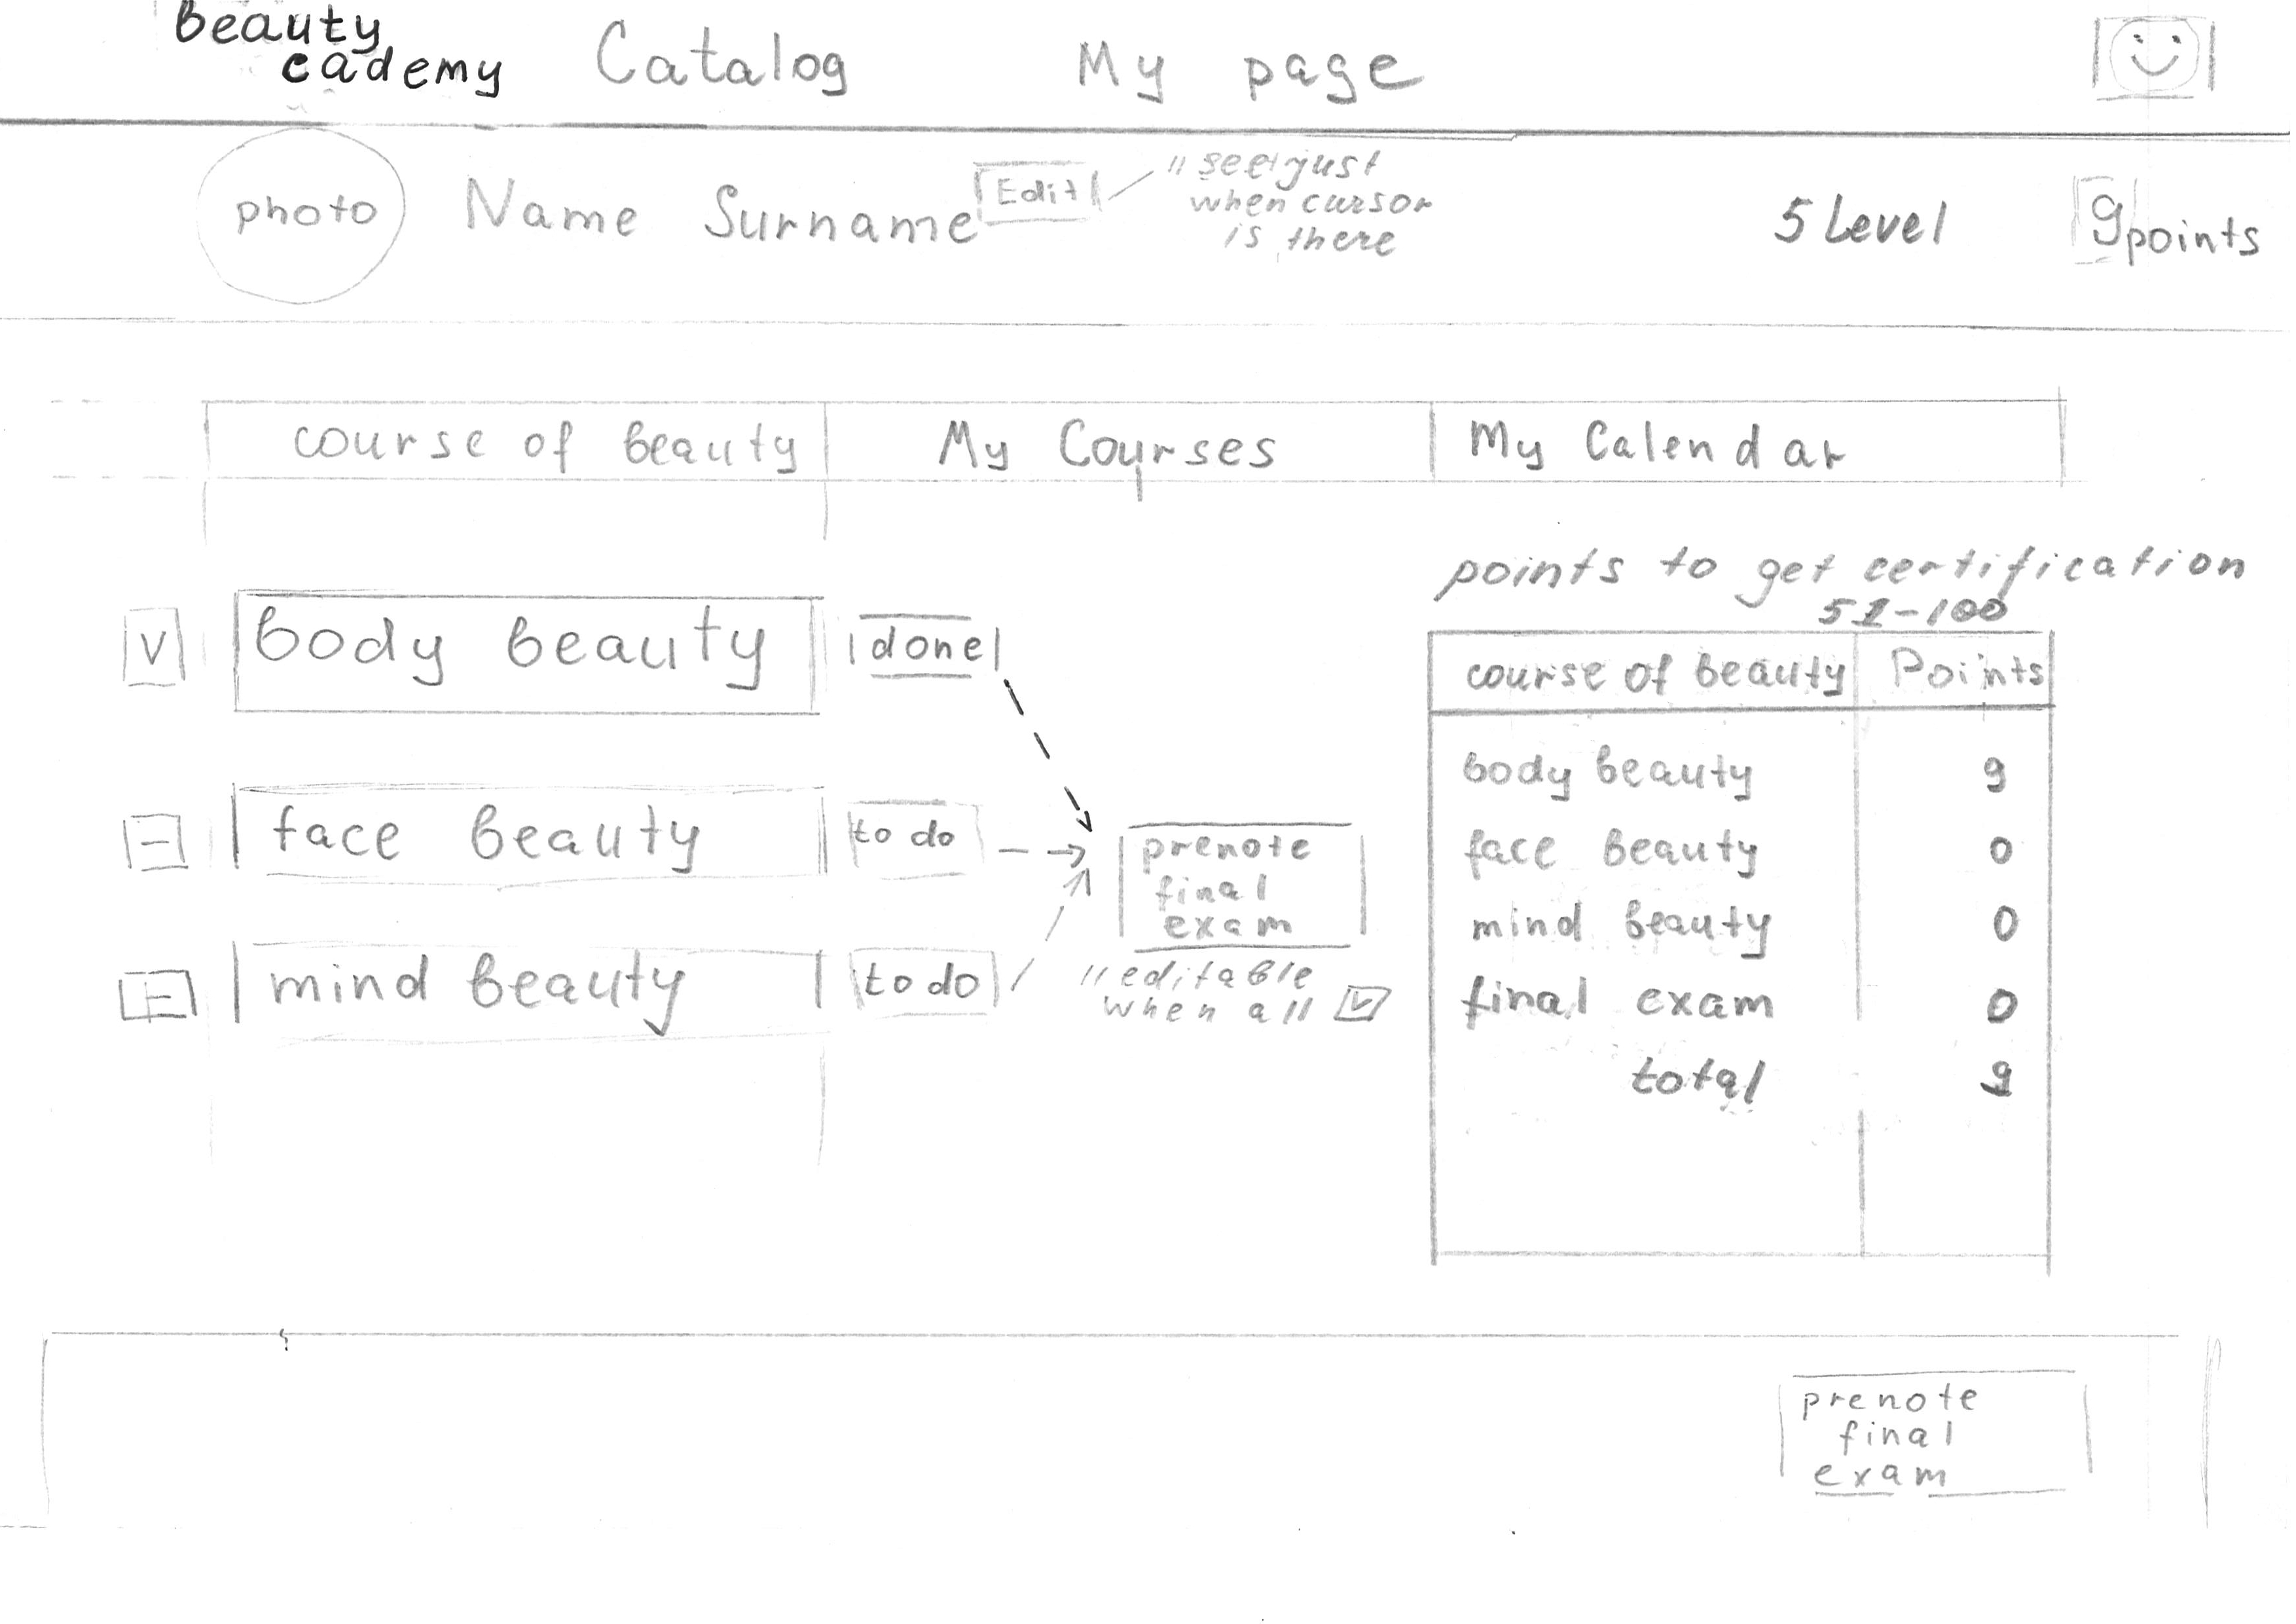 Beauty
cademy
Catalog
My page
photo
Name Surname
Edit
// see just
when cursor
is there
5 Level
9 points
course of beauty
My Courses
My Calendar
points to get certification
51-100
V
body beauty
done
face beauty
to do
mind beauty
to do
prenote
final
exam
// editable
when all V
course of beauty Points
body beauty 9
face beauty 0
mind beauty 0
final exam 0
total 9
prenote
final
exam